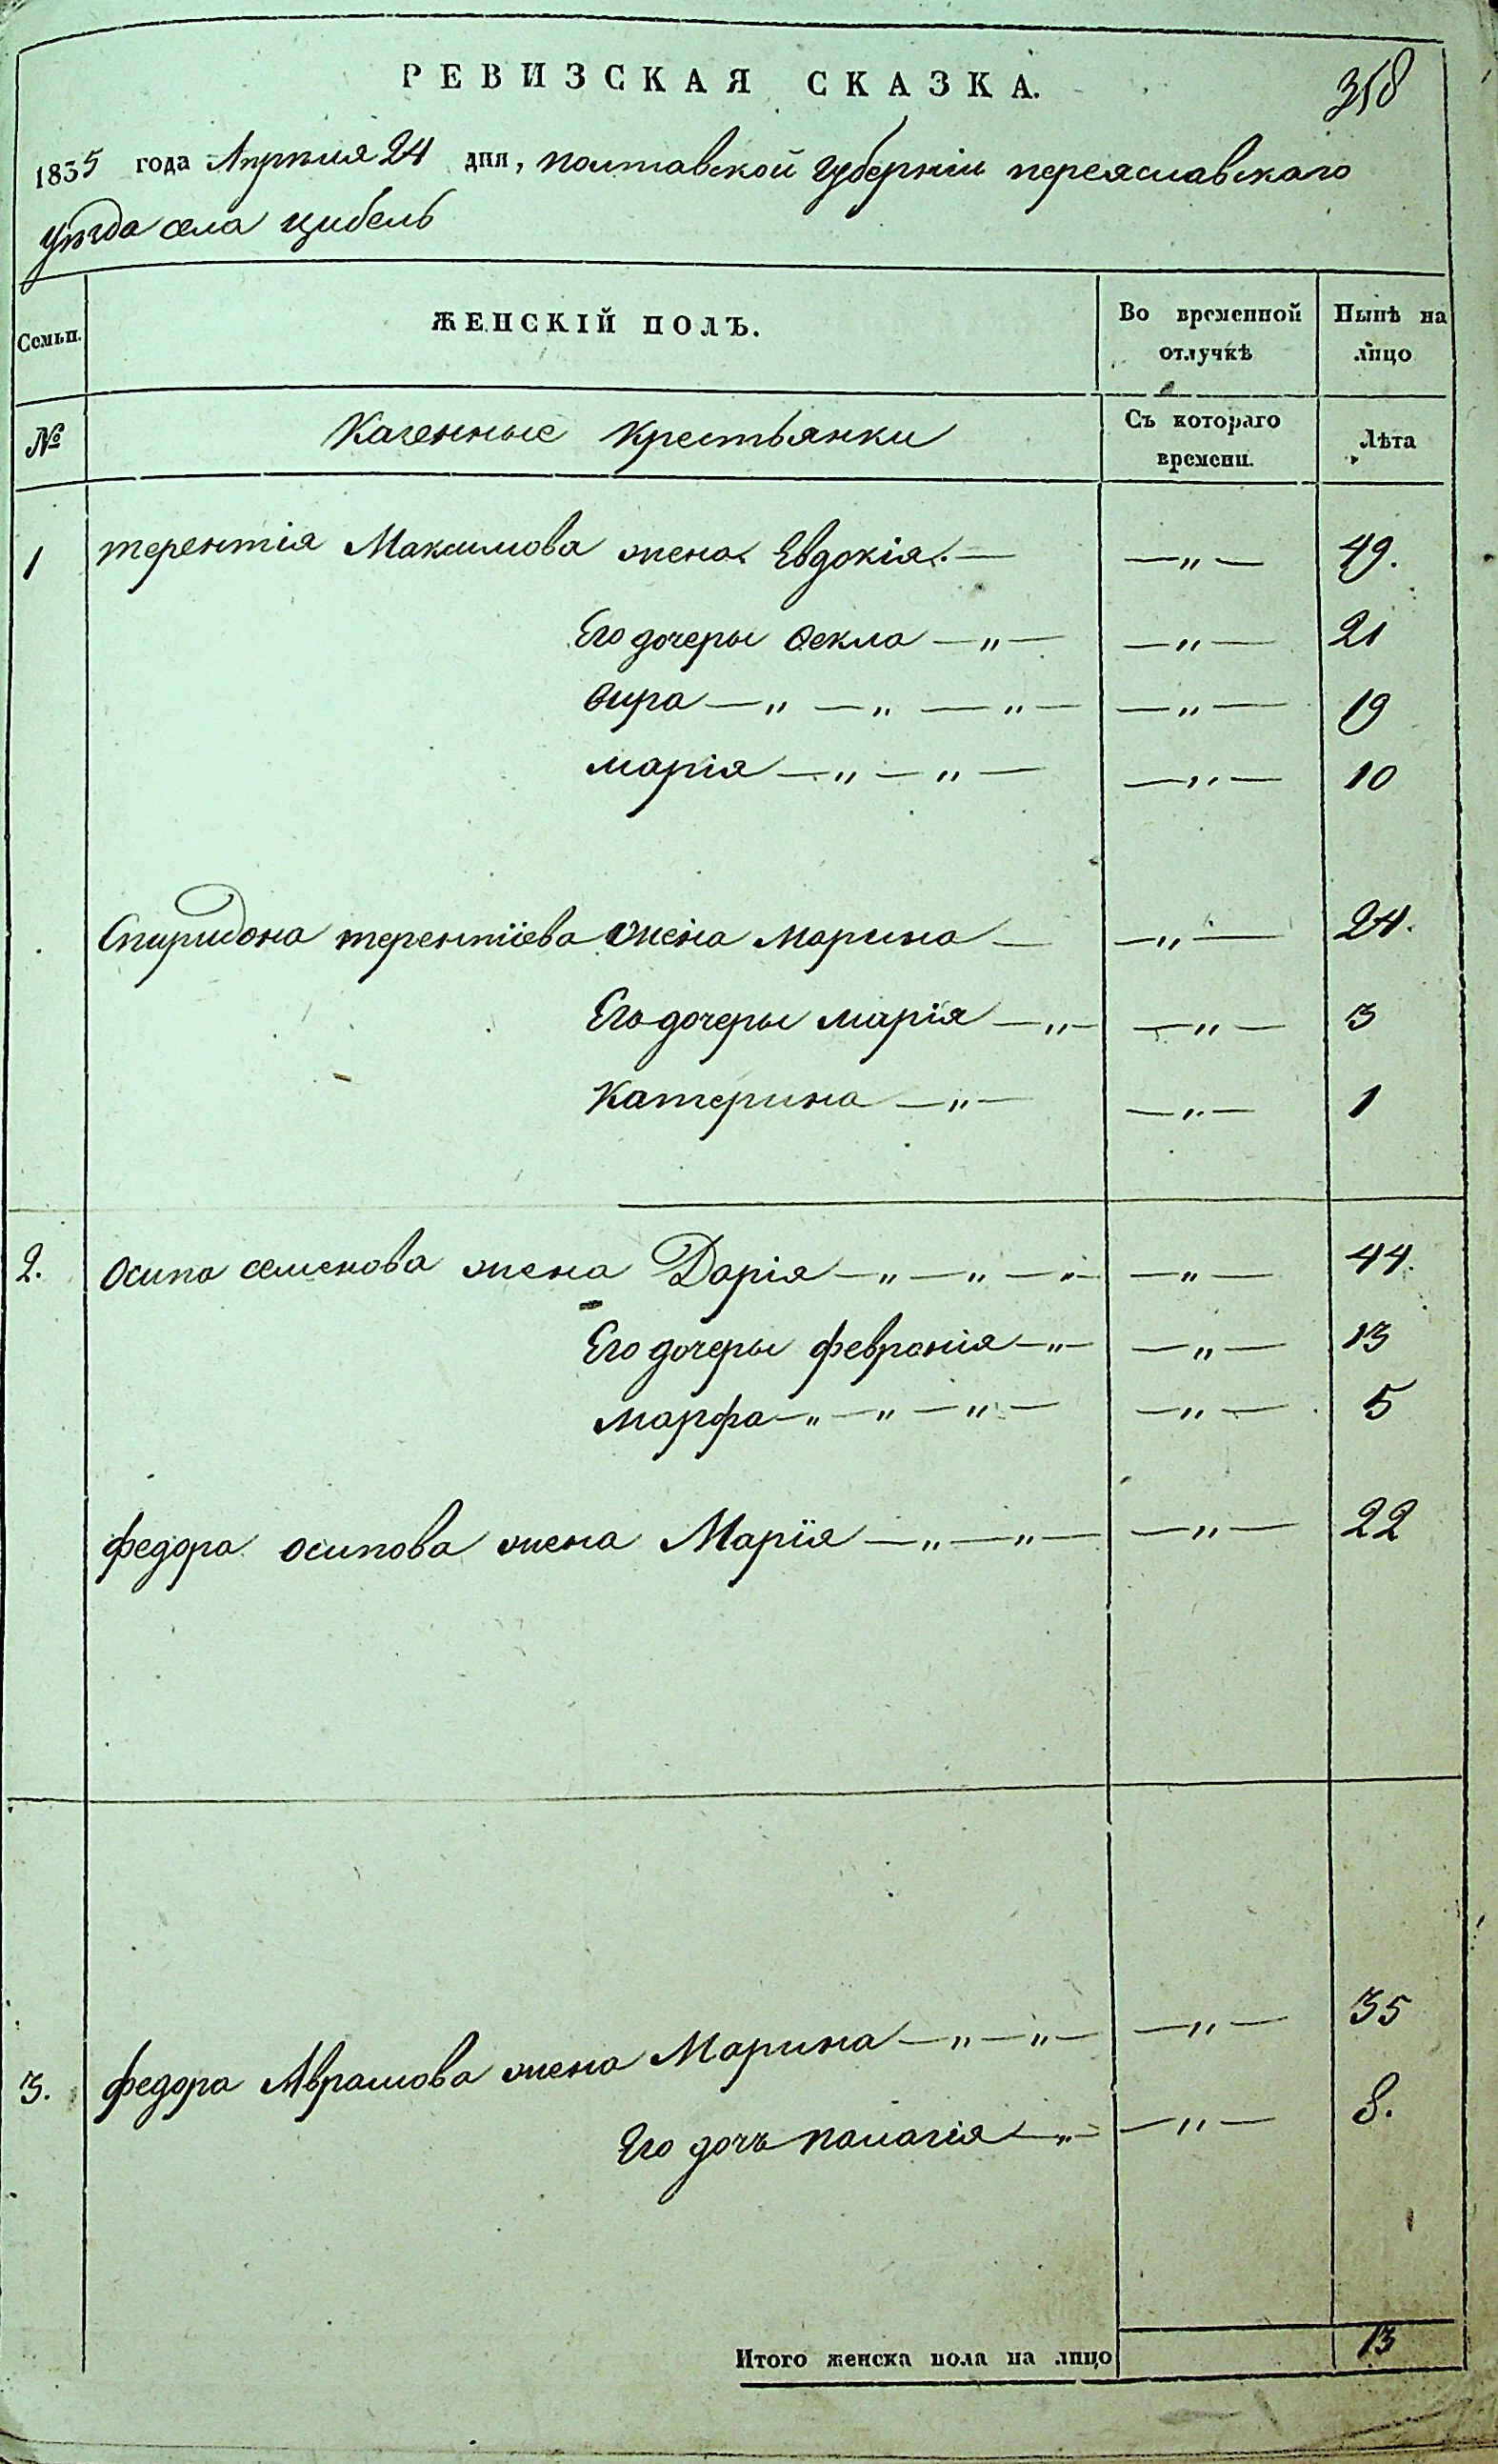 РЕВИЗСКАЯ СКАЗКА.
358
1835 года Апрѣля 24 дня, полтавской губерніи переяславскаго
уѣзда села цибель
Семьи. ЖЕНСКІЙ ПОЛЪ. Во временной отлучкѣ Нынѣ на лицо
№ Казенные крестьянки Съ котораго времени. Лѣта
1 терентія Максимова жена Евдокія — —„— 49.
Его дочеры Ѳекла —„— —„— 21
Ѳира —„ —„ —„— —„— 19
марія —„—„— —„— 10
Спиридона терентіева жена марина — —„— 24.
Его дочеры марія —„— —„— 3
Катерина —„— —„— 1
2. осипа семенова жена Дарія —„—„—„— —„— 44.
Его дочеры февронія —„— —„— 13
марфа —„—„—„— —„— 5
федора осипова жена Марія —„—„— —„— 22
3. федора Аврамова жена Марина —„—„— —„— 35
Его дочь палагія —„— —„— 8.
Итого женска пола на лицо 13